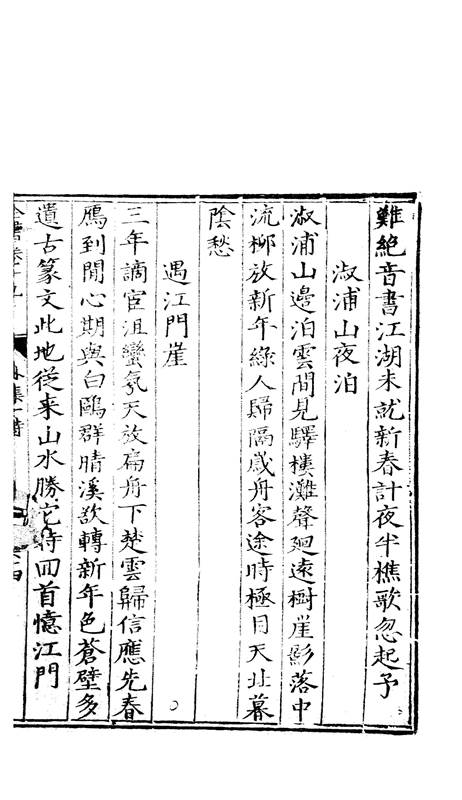 難絕音書江湖未就新春計夜半樵歌忽起予
溆浦山夜泊
溆浦山邊泊雲間見驛樓灘聲廻遠樹崖影落中
流柳放新年綠人歸隔歲舟客途時極目天北暮
陰愁
過江門崖
三年謫宦沮蠻氛天放扁舟下楚雲歸信應先春
鴈到閒心期與白鷗群晴溪欲轉新年色蒼壁多
遺古篆文此地從来山水勝它時回首憶江門